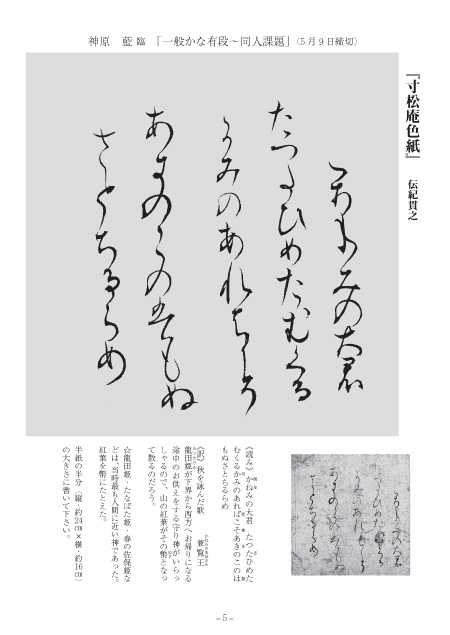 神原　藍 臨　「一般かな有段～同人課題」（5月9日締切）
『寸松庵色紙』　伝紀貫之
かねみの大君
たつたひめたむくる
かみのあれはこそ
あきのこのはもぬ
さとちるらめ
《読み》かねみの大君　たつたひめた
むくるかみのあればこそあきのこのは
もぬさとちるらめ
《訳》秋を詠んだ歌　兼覧王
龍田姫が下界から西方へお帰りになる
途中のお供えをする守り神がいらっ
しゃるので、山の紅葉がその幣となっ
て散るのだろう。
☆龍田姫・たなばた姫・春の佐保姫な
どは、当時最も人間に近い神であった。
紅葉を幣にたとえた。
半紙の半分（縦・約24㎝×横・約16㎝）
の大きさに書いて下さい。
－5－